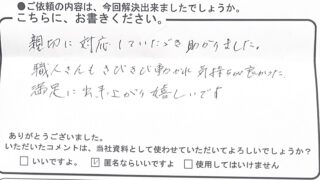 ●ご依頼の内容は、今回解決出来ましたでしょうか。
こちらに、お書きください。
親切に対応していただき助かりました。
職人さんもきびきび動かれ気持ちが良かった
満足に出来上がり嬉しいです
ありがとうございました。
いただいたコメントは、当社資料として使わせていただいてよろしいでしょうか?
□いいですよ。 ☑匿名ならいいですよ □使用してはいけません